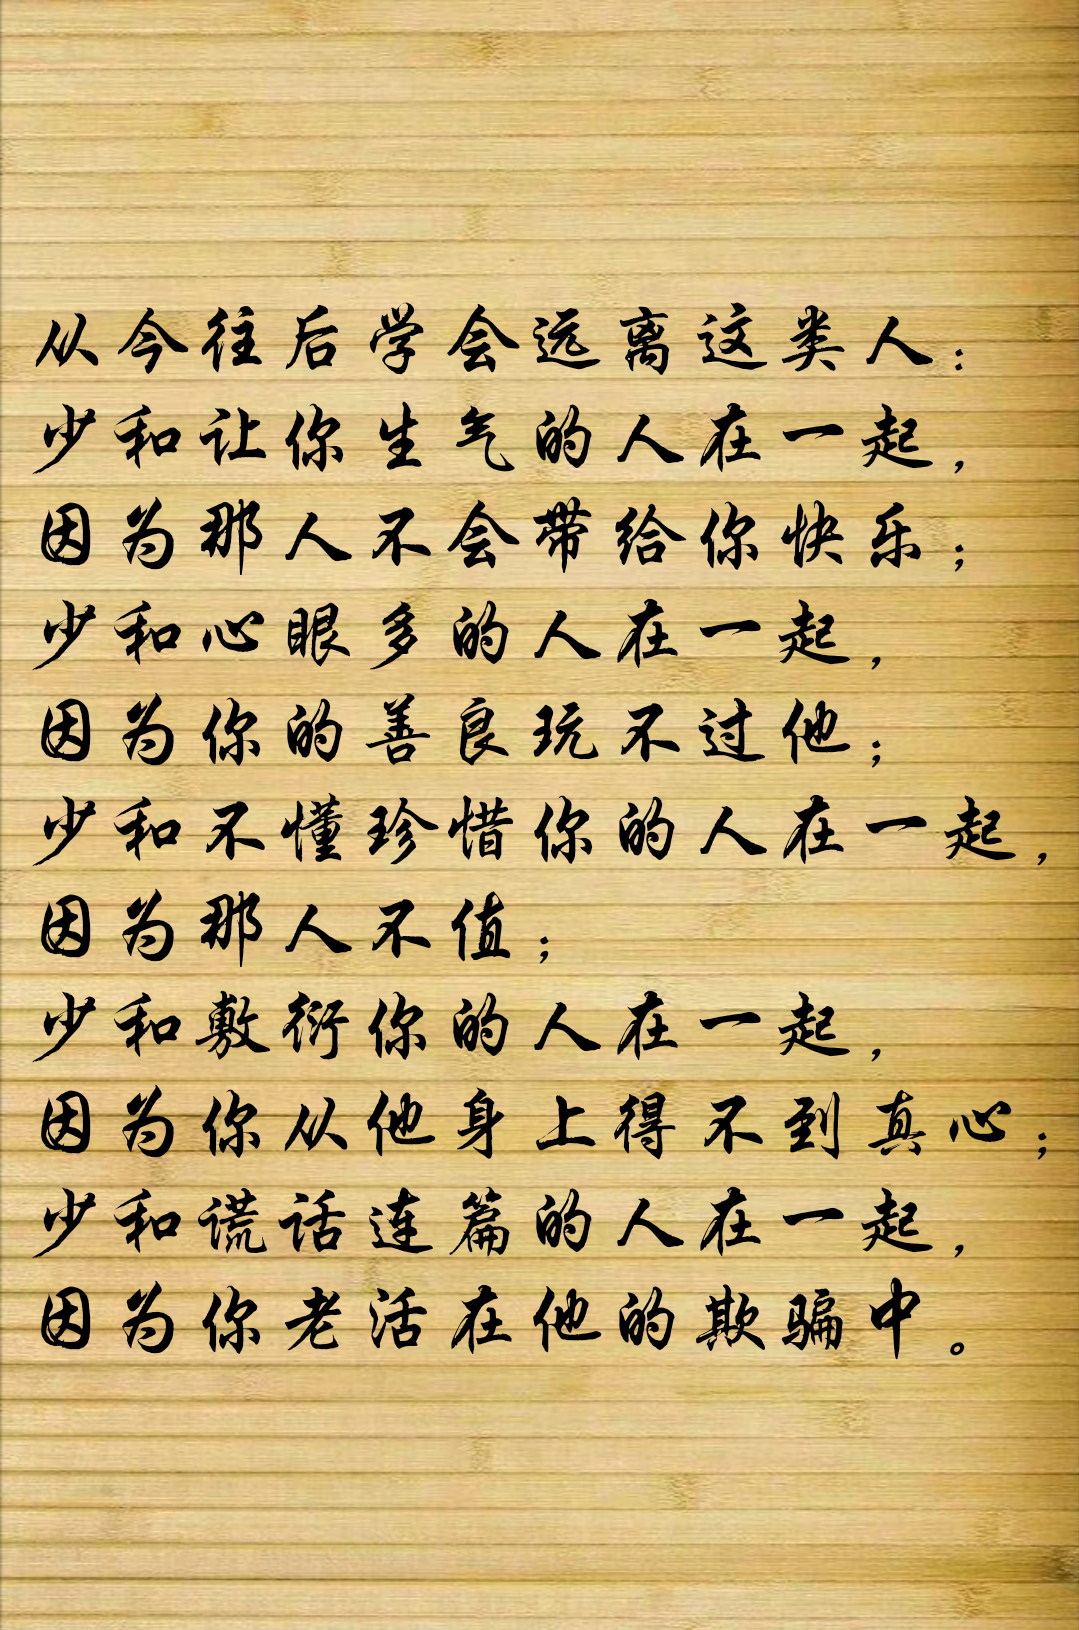 从今往后学会远离这类人：
少和让你生气的人在一起，
因为那人不会带给你快乐；
少和心眼多的人在一起，
因为你的善良玩不过他；
少和不懂珍惜你的人在一起，
因为那人不值；
少和敷衍你的人在一起，
因为你从他身上得不到真心；
少和谎话连篇的人在一起，
因为你老活在他的欺骗中。